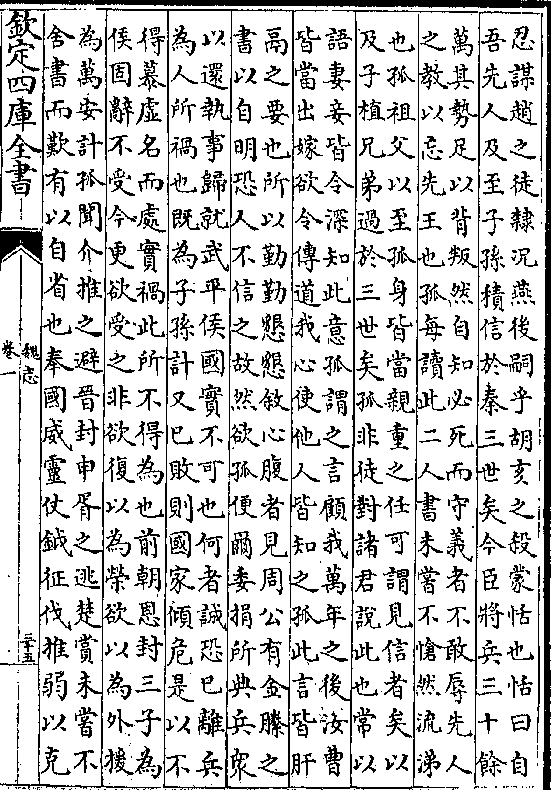 忍謀趙之徒隸況燕後嗣乎胡亥之殺蒙恬也恬曰自
吾先人及至子孫積信於秦三世矣今臣將兵三十餘
萬其勢足以背叛然自知必死而守義者不敢辱先人
之教以忘先王也孤每讀此二人書未嘗不愴然流涕
也孤祖父以至孤身皆當親重之任可謂見信者矣以
及子植兄弟過於三世矣孤非徒對諸君說此也常以
語妻妾皆令深知此意孤謂之言顧我萬年之後汝曹
皆當出嫁欲令傳道我心使他人皆知之孤此言皆肝
鬲之要也所以勤勤懇懇敘心腹者見周公有金縢之
書以自明恐人不信之故然欲孤便爾委捐所典兵衆
以還執事歸就武平侯國實不可也何者誠恐已離兵
為人所禍也既為子孫計又已敗則國家傾危是以不
得慕虛名而處實禍此所不得為也前朝恩封三子為
侯固辭不受今更欲受之非欲復以為榮欲以為外援
為萬安計孤聞介推之避晉封申胥之逃楚賞未嘗不
舍書而歎有以自省也奉國威靈仗鉞征伐推弱以克
欽定四庫全書
魏志
卷一
三十五